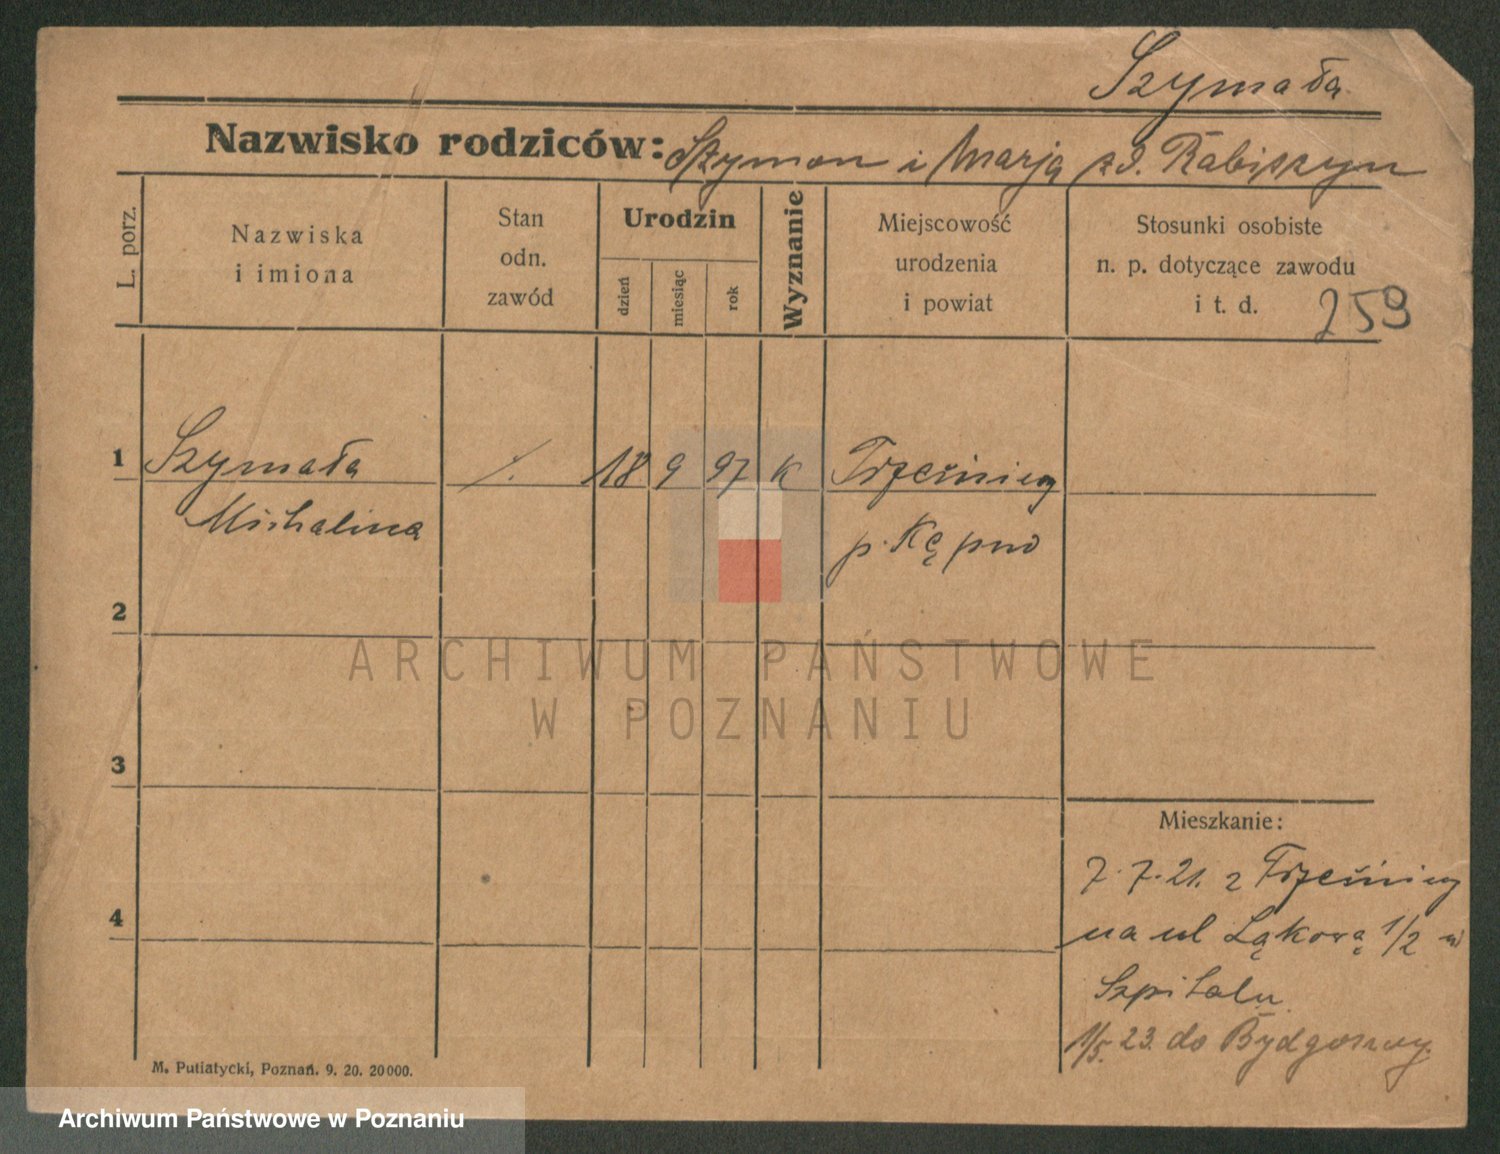 Szymała
Nazwisko rodziców: Szymon i Marja zd. Rabiszyn
L. porz.
Nazwiska
i imiona
Stan
odn.
zawód
Urodzin
dzień
miesiąc
rok
Wyznanie
Miejscowość
urodzenia
i powiat
Stosunki osobiste
n. p. dotyczące zawodu
i t. d.
259
1 Szymała /. 18 9 97 K Trzcinicy
Michalina p. Kępno
2
ARCHIWUM PAŃSTWOWE
W POZNANIU
3
Mieszkanie:
7.7.21. z Trzcinicy
4
na ul Łąkową 1/2 w
Szpitalu
1/5. 23. do Bydgoszczy.
M. Putiatycki, Poznań. 9. 20. 20000.
Archiwum Państwowe w Poznaniu